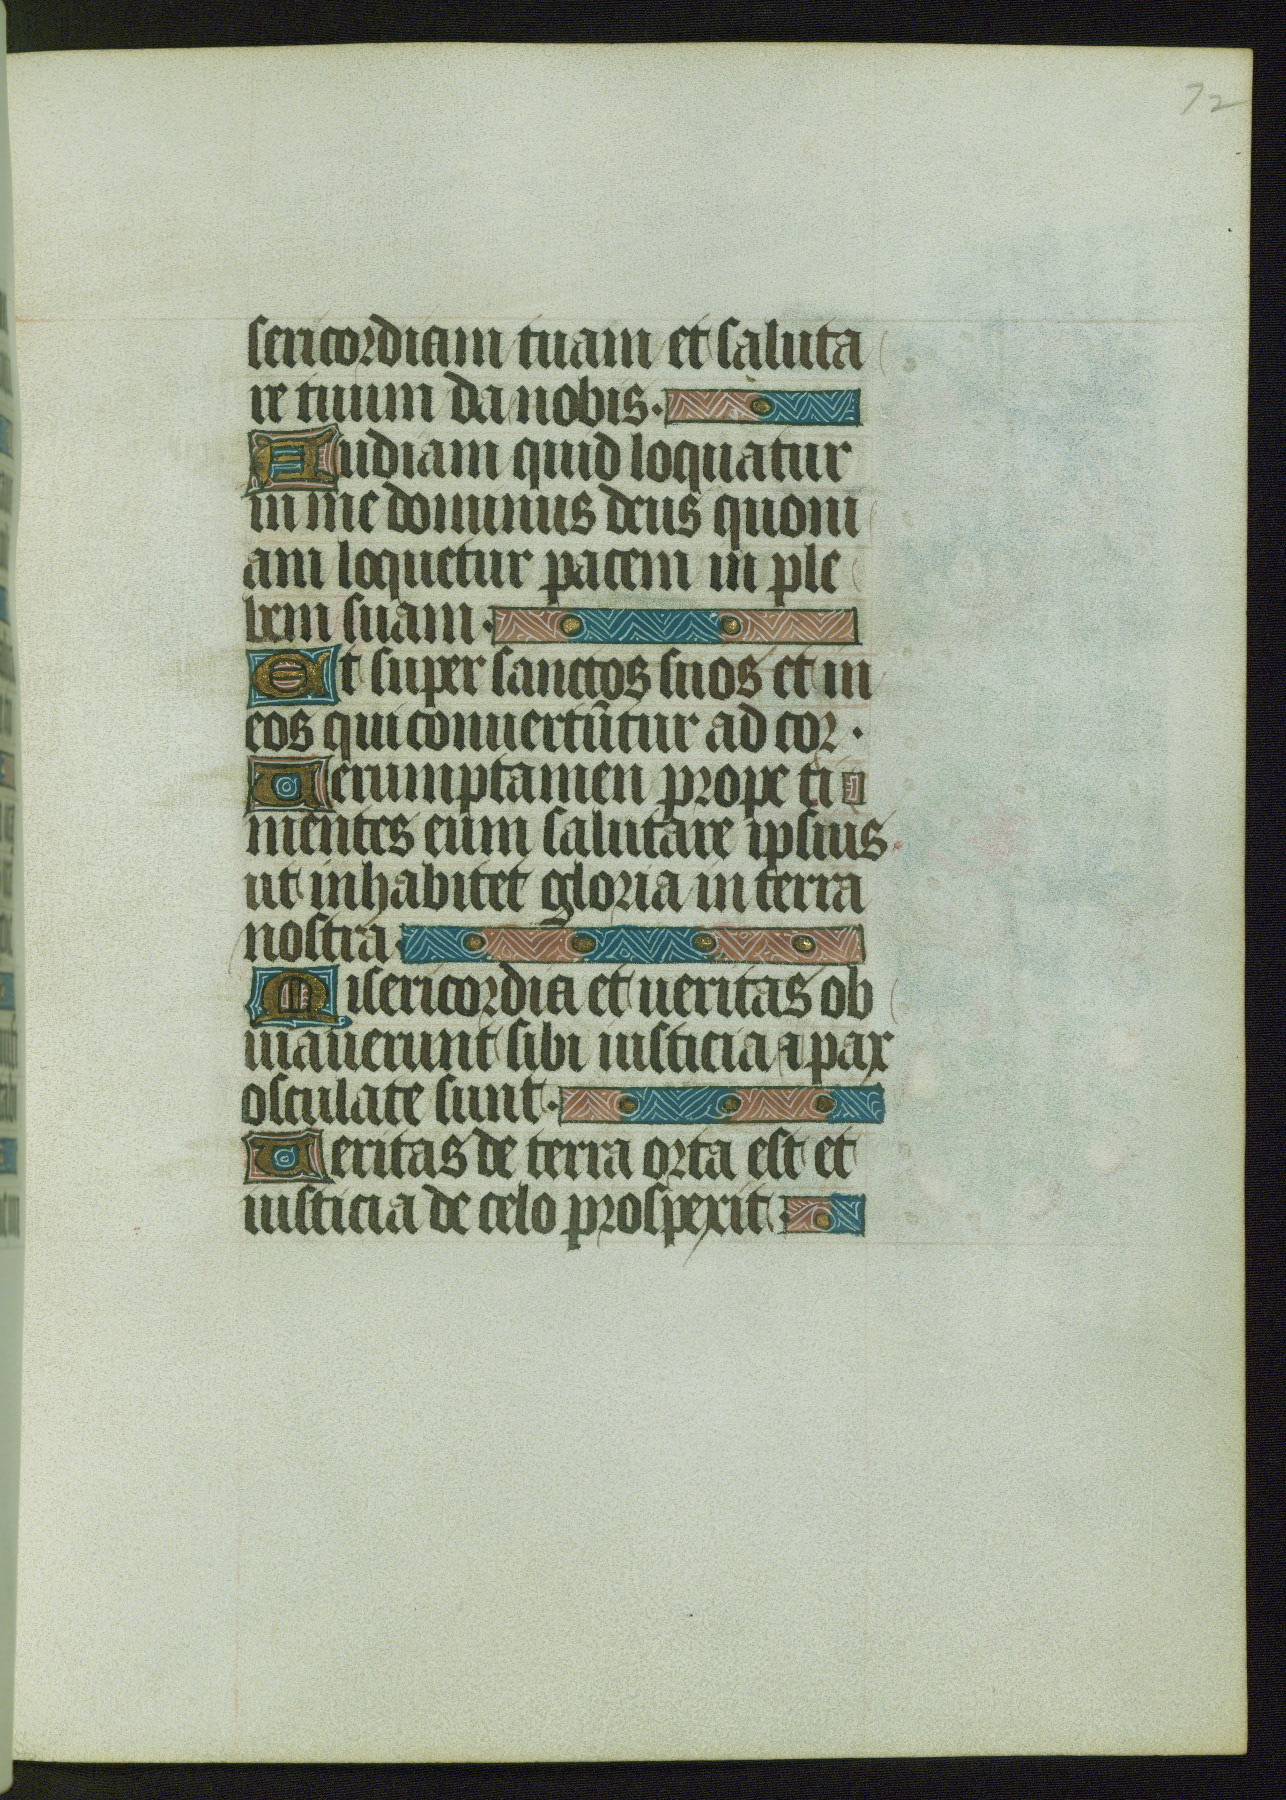 72
sericordiam tuam et saluta
re tuum da nobis.
Audiam quid loquatur
in me dominus deus quoni
am loquetur pacem in ple
bem suam.
Et super sanctos suos et in
eos qui conuertūtur ad cor.
Uerumptamen prope ti
mentes eum salutare ipsius
ut inhabitet gloria in terra
nostra.
Misericordia et ueritas ob
uiauerunt sibi iusticia a pax
osculate sunt.
Ueritas de terra orta est et
iusticia de celo prospexit.